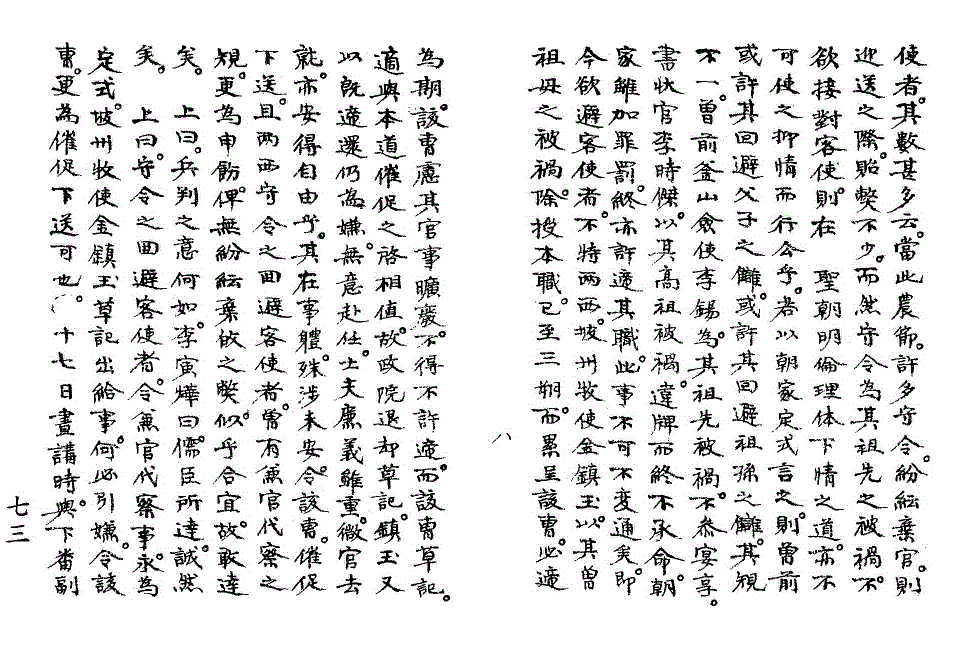 使者。其數甚多云。當此農節。許多守令。紛紜棄官。則
迎送之際。貽弊不少。而然守令為其祖先之被禍。不
欲接對客使。則在 聖朝明倫理体下情之道。亦不
可使之抑情而行公乎。若以朝家定式言之。則曾前
或許其回避父子之讎。或許其回避祖孫之讎。其規
不一。曾前釜山僉使李錫為其祖先被禍。不參宴享。
書狀官李時傑。以其高祖被禍。違牌而終不承命。朝
家雖加罪罰。終亦許遞其職。此事不可不変通矣。即
今欲避客使者。不特兩西。坡州牧使金鎮玉。以其曾
祖母之被禍。除授本職。已至三朔。而累呈該曹。必遞
為期。該曹慮其官事曠廢。不得不許遞。而該曹草記。
適與本道催促之啓相值。故政院退却草記。鎮玉又
以旣遞還仍為嫌。無意赴任。士夫廉義雖重。微官去
就。亦安得自由乎。其在事體。殊涉未安。令該曹。催促
下送。且两西守令之回避客使者。曾有兼官代察之
規。更為申飭。俾無紛紜棄放之弊。似乎合宜。故敢達
矣。 上曰。兵判之意何如。李寅燁曰。儒臣所達。誠然
矣。 上曰。守令之回避客使者。令兼官代察事。永為
定式。坡州牧使金鎮玉草記出給事。何必引嫌。令該
曹。更為催促下送可也。 十七日晝講時。與下番副
八
七三